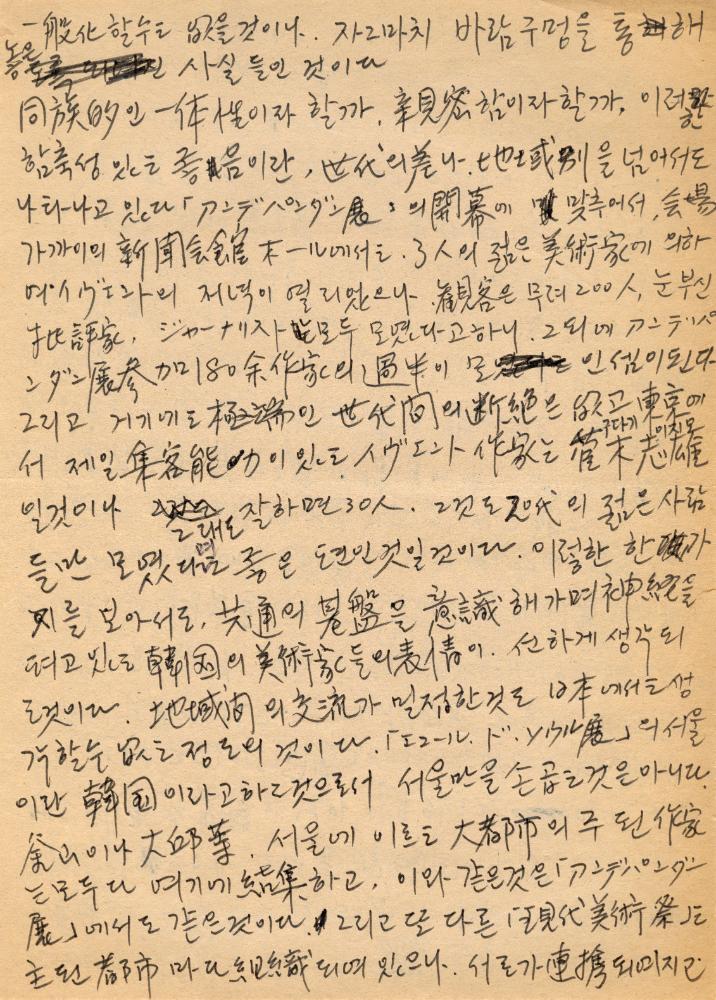 一般化할수는 없을것이나. 자그마치 바람구멍을 통해
놓은 사실들인 것이다
同族的인 一体性이라 할까, 親密함이라할까, 이러한
함축성 있는 좋음이란, 世代의差나. 地域別을 넘어서도
나타나고 있다「アンデパンダン展」의 開幕에 맞추어서, 会場
가까이의 新聞会館 ホール에서도. 3人의 젊은 美術家에 의하
여 イヴェント의 저녁이 열리었으나. 観客은 무려 200人, 눈부신
批評家, ジャーナリスト 모두 모였다고하니. 그외에 アンデパ
ンダン展参加 180余作家의 過半이 모 인셈이된다
그리고 거기에는 極端인 世代間의 断絶은 없고 東京에
서 제일 集客能力이 있는 イヴェント 作家는 菅木志雄
일것이나 그래도 잘하면 30人. 그것도 現代의 젊은 사람
들만 모였다면 좋은 편인것일것이다. 이렇한 한가
지를 보아서도, 共通의 基盤을 意識해가며 神経을
펴고있는 韓国의 美術家들의 表情이. 선하게 생각되
는것이다. 地域間의 交流가 밀접한것도 日本에서는 생
각할수 없는 정도의 것이다.「エコール.ド.ソウル展」의 서울
이란 韓国이라고하는것으로서 서울만을 손곱는것은아니다.
釜山이나 大邱等, 서울에 이르는 大都市의 주된 作家
는모두다 여기에 結集하고, 이와 같은것은「アンデパンダン
展」에서도 같은것이다. 그리고 또 다른「現代美術祭」는
主된 都市마다 組織되여 있으나. 서로가 連携되여지고